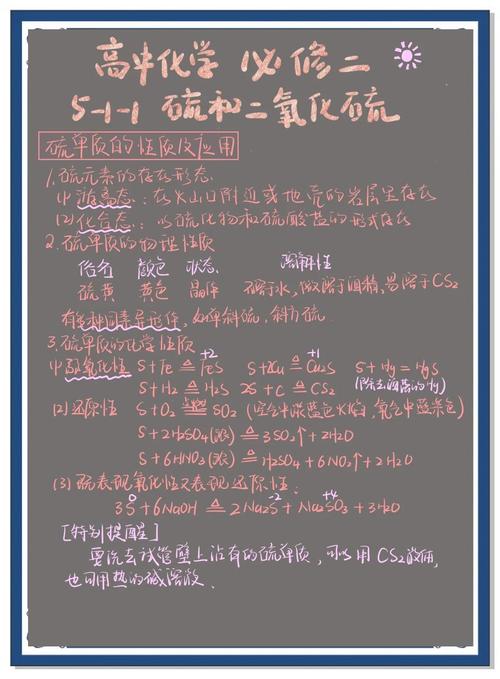 高中化学 必修二
5-1-1 硫和二氧化硫
硫单质的性质及应用
1.硫元素的存在形态
(1)游离态:在火山口附近或地壳的岩层里存在
(2)化合态:以硫化物和硫酸盐的形式存在
2.硫单质的物理性质
俗名 颜色 状态 溶解性
硫黄 黄色 晶体 不溶于水,微溶于酒精,易溶于CS₂
有多种同素异形体,如单斜硫,斜方硫
3.硫单质的化学性质
(1)弱氧化性 S+Fe ≜ FeS +2 S+2Cu ≜ Cu₂S +1 S+Hg=HgS
S+H₂ ≜ H₂S 2S+C ≜ CS₂ (除去洒落的Hg)
(2)还原性 S+O₂ 点燃 SO₂ (空气中淡蓝色火焰,氧气中蓝紫色)
S+2H₂SO₄(浓) ≜ 3SO₂↑+2H₂O
S+6HNO₃(浓) ≜ H₂SO₄+6NO₂↑+2H₂O
(3)既表现氧化性又表现还原性:
3S+6NaOH ≜ 2Na₂S+Na₂SO₃+3H₂O 0 -2 +4
[特别提醒]
要洗去试管壁上沾有的硫单质,可以用CS₂溶解,
也可用热的碱溶液.